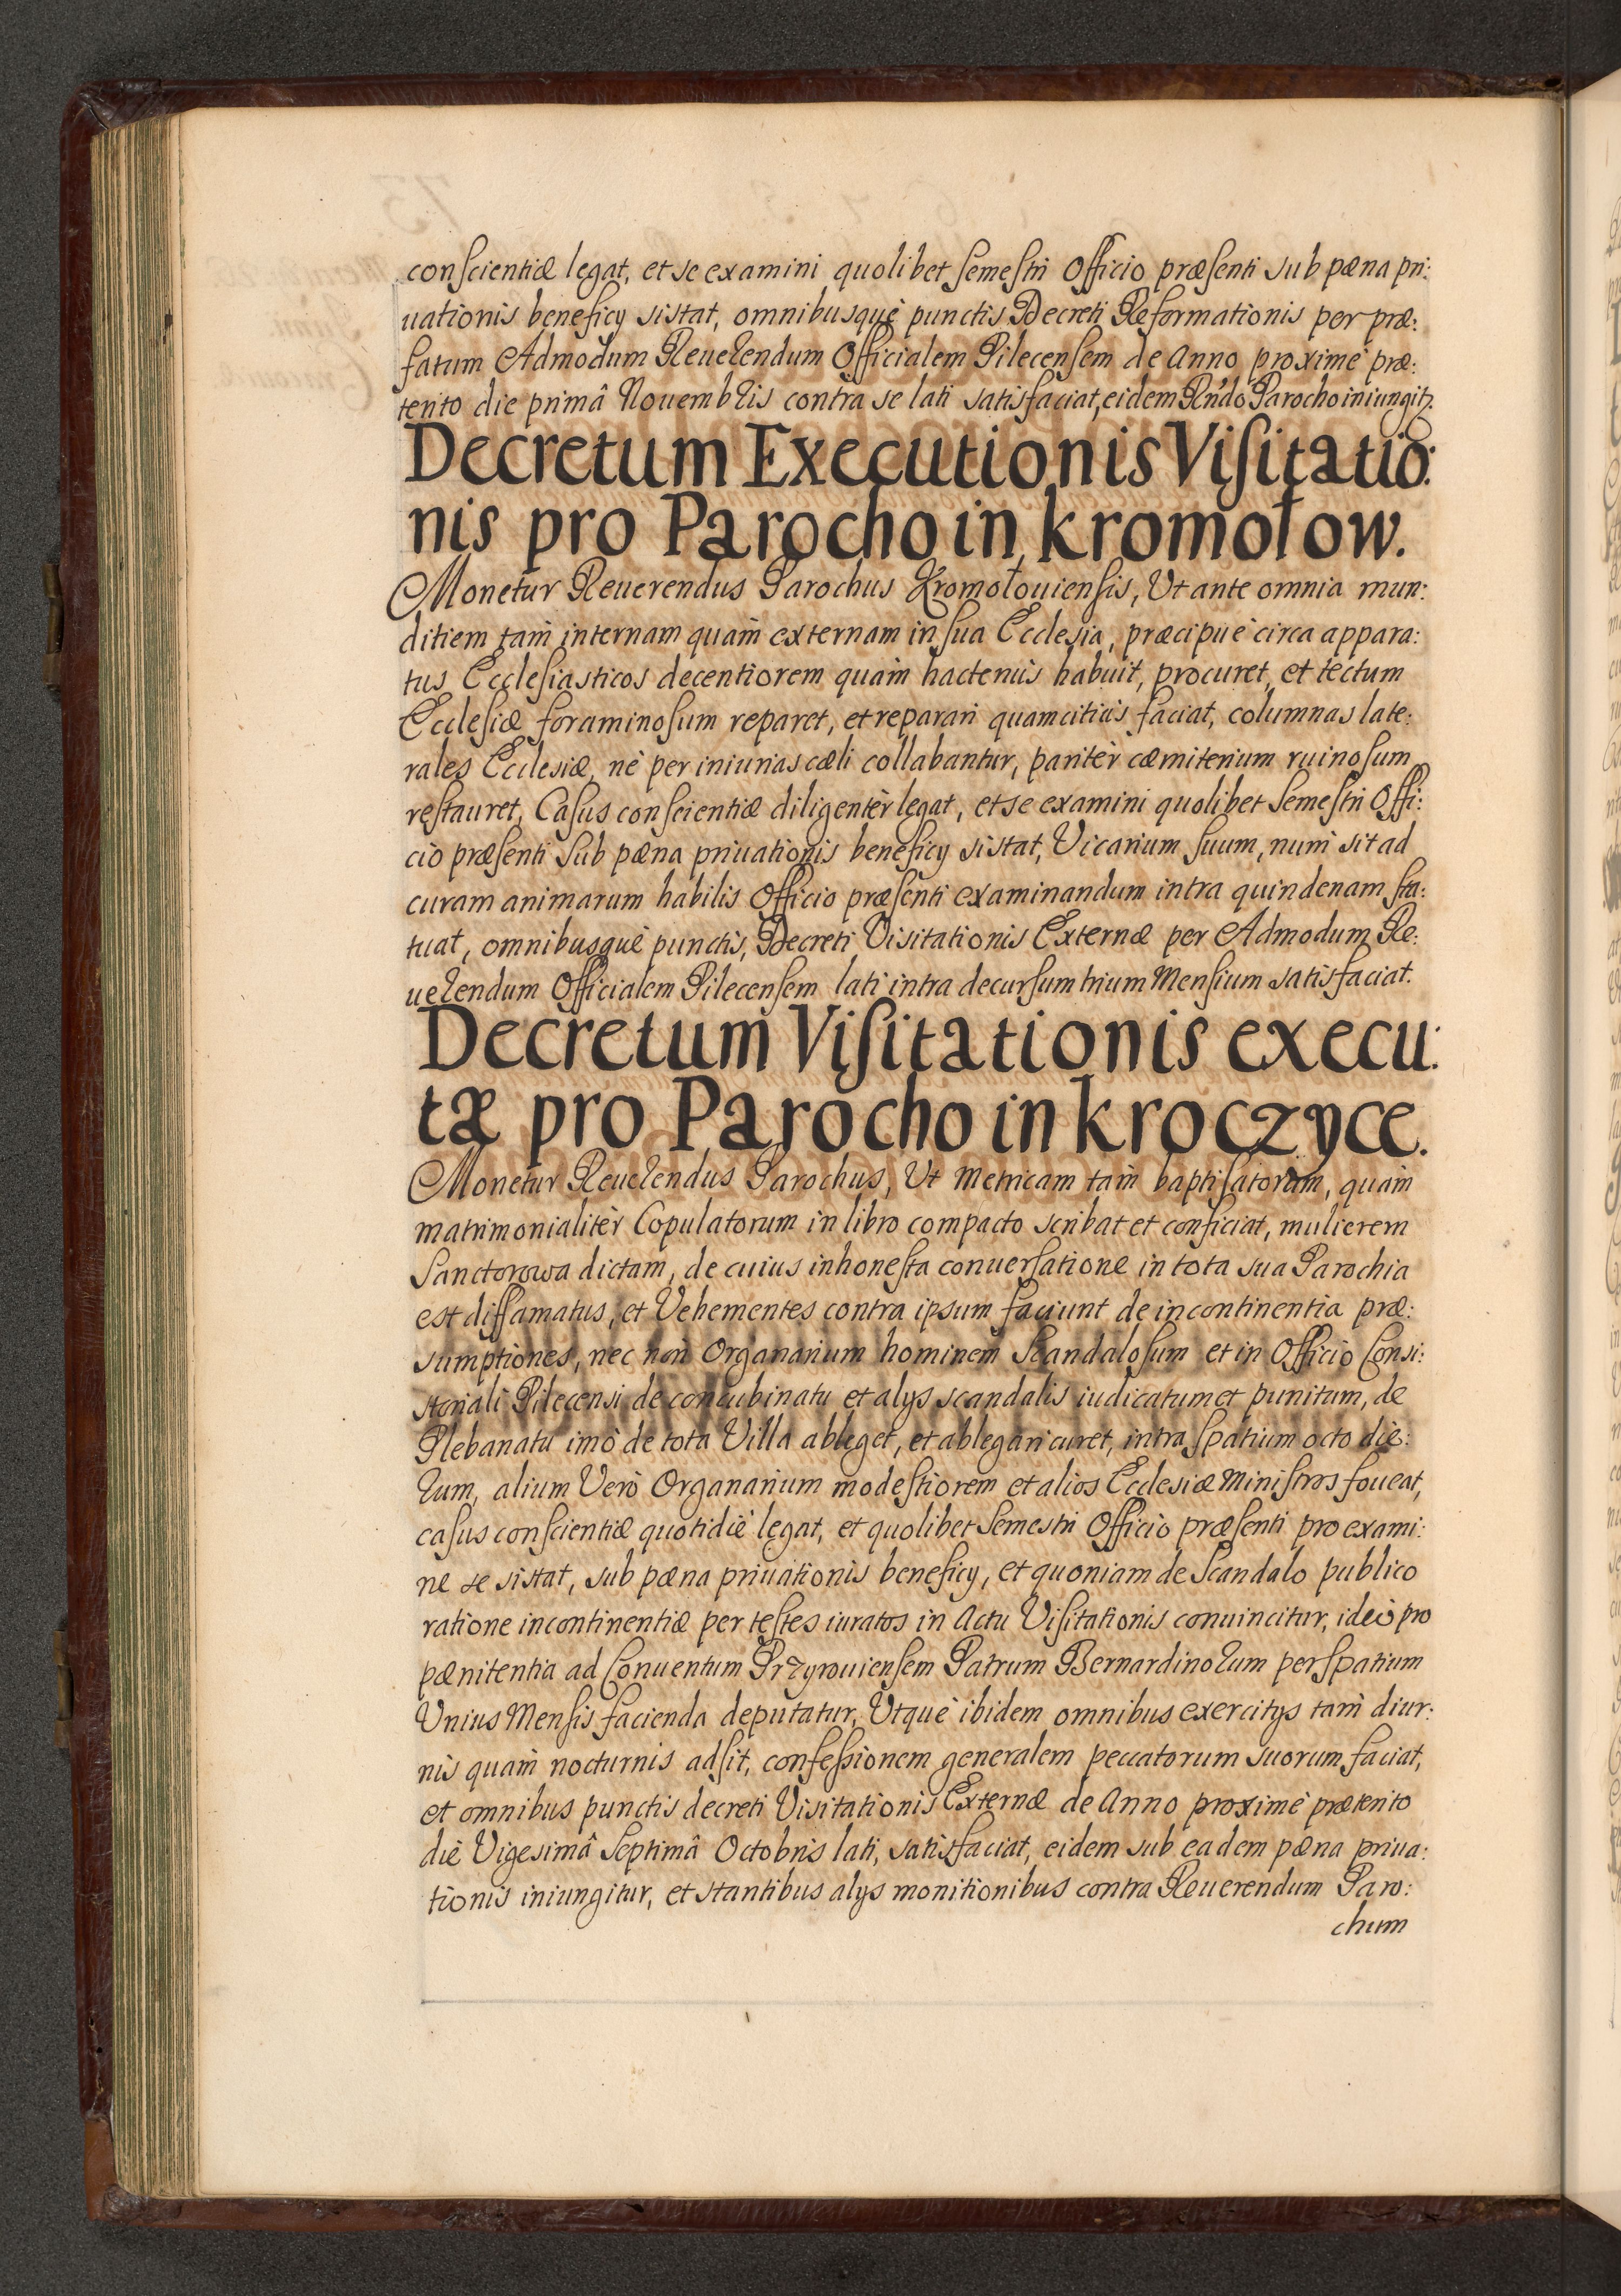 conſcientiæ legat, et se examini quolibet ſemeſtri Officio præſenti sub pæna pri:
uationis beneficy sistat, omnibusquè punctis Decreti Reformationis per præ:
fatum Admodum Reuerendum Officialem Pilecenſem de Anno proximè præ:
terito die primâ Nouembris contra se lati satisfaciat, eidem Rńdo Parocho iniungitʒ.
Decretum Executionis Viſitatio:
nis pro Parocho in kromołow.
Monetur Reuerendus Parochus Kromołouienſis, Ut ante omnia mun:
ditiem tam̀ internam quam̀ externam in ſua Ecclesia, præcipuè circa appara:
tus Eccleſiasticos decentiorem quam̀ hactenùs habuit, procuret, et tectum
Eccleſiæ foraminoſum reparet, et reparari quamcitiùs faciat, columnas late:
rales Ecclesiæ, nè per iniurias cæli collabantur, paritèr cæmiterium ruinoſum
reſtauret, Caſus conſcientiæ diligentèr legat, et se examini quolibet Semeſtri Offi:
cio præſenti Sub pæna priuationis beneficy sistat, Vicarium ſuum, num̀ sit ad
curam animarum habilis Officio præſenti examinandum intra quindenam ſta:
tuat, omnibusquè punctis, Decreti Visitationis Externæ per Admodum Re:
uerendum Officialem Pilecenſem lati intra decurſum trium Menſium satisfaciat.
Decretum Viſitationis execu:
tæ pro Parocho in kroczyce.
Monetur Reuerendus Parochus, Ut Metricam tam̀ baptiſatorum, quam̀
matrimonialitèr Copulatorum in libro compacto scribat et conficiat, mulierem
Sanctorowa dictam, de cuius inhoneſta conuerſatione in tota sua Parochia
est diffamatus, et Vehementes contra ipsum faciunt de incontinentia præ:
sumptiones, nec non̄ Organarium hominem Scandaloſum et in Officio Consi:
storiali Pilecensi de concubinatu et alys scandalis iudicatum et punitum, de
Plebanatu imò de tota Villa ableget, et ablegari curet, intra ſpatium octo die:
rum, alium Verò Organarium modeſtiorem et alios Ecclesiæ Miniſtros foueat,
caſus conſcientiæ quotidiè legat, et quolibet Semestri Officio præſenti pro exami:
ne se sistat, sub pæna priuationis beneficy, et quoniam de Scandalo publico
ratione incontinentiæ per teſtes iuratos in Actu Viſitationis conuincitur, ideò pro
pænitentia ad Conuentum Przyrouienſem Patrum Bernardinorum per ſpatium
Unius Menſis facienda deputatur, Utquè ibidem omnibus exercitys tam̀ diur:
nis quam̀ nocturnis adſit, confeſsionem generalem peccatorum suorum faciat,
et omnibus punctis decreti Visitationis Externæ de Anno proximè præterito
diè Vigesimâ Septimâ Octobris lati, satisfaciat, eidem sub eadem pæna priua:
tionis iniungitur, et stantibus alys monitionibus contra Reuerendum Paro:
chum